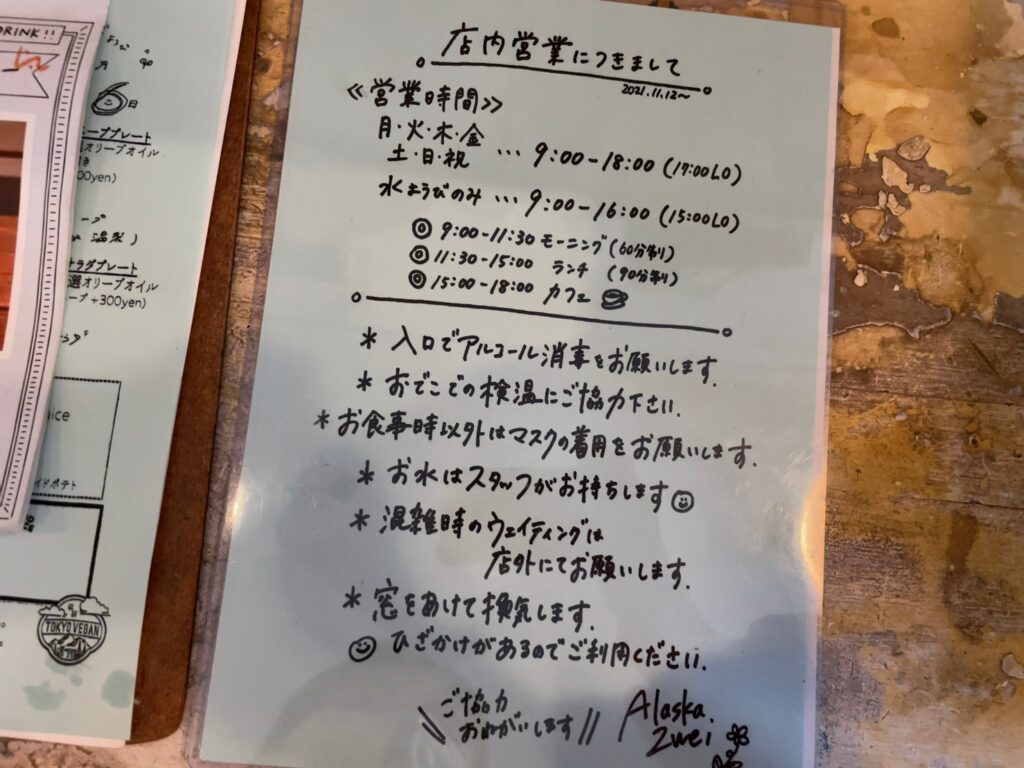 DRINK!!
日
ーププレート
オリーブオイル
00yen)
ープ
温菜)
ラダプレート
選オリーブオイル
ープ+300yen)
ice
イドポテト
TOKYO VEGAN
店内営業につきまして
2021.11.12〜
≪営業時間≫
月・火・木・金
土・日・祝 … 9:00-18:00 (17:00LO)
水ようびのみ … 9:00-16:00 (15:00LO)
◎ 9:00-11:30 モーニング (60分制)
◎ 11:30-15:00 ランチ (90分制)
◎ 15:00-18:00 カフェ
* 入口でアルコール消毒をお願いします.
* おでこでの検温にご協力下さい.
* お食事時以外はマスクの着用をお願いします.
* お水はスタッフがお持ちします
* 混雑時のウェイティングは
店外にてお願いします.
* 窓をあけて換気します.
ひざかけがあるのでご利用ください.
\\ ご協力
おねがいします //
Alaska.
Zwei